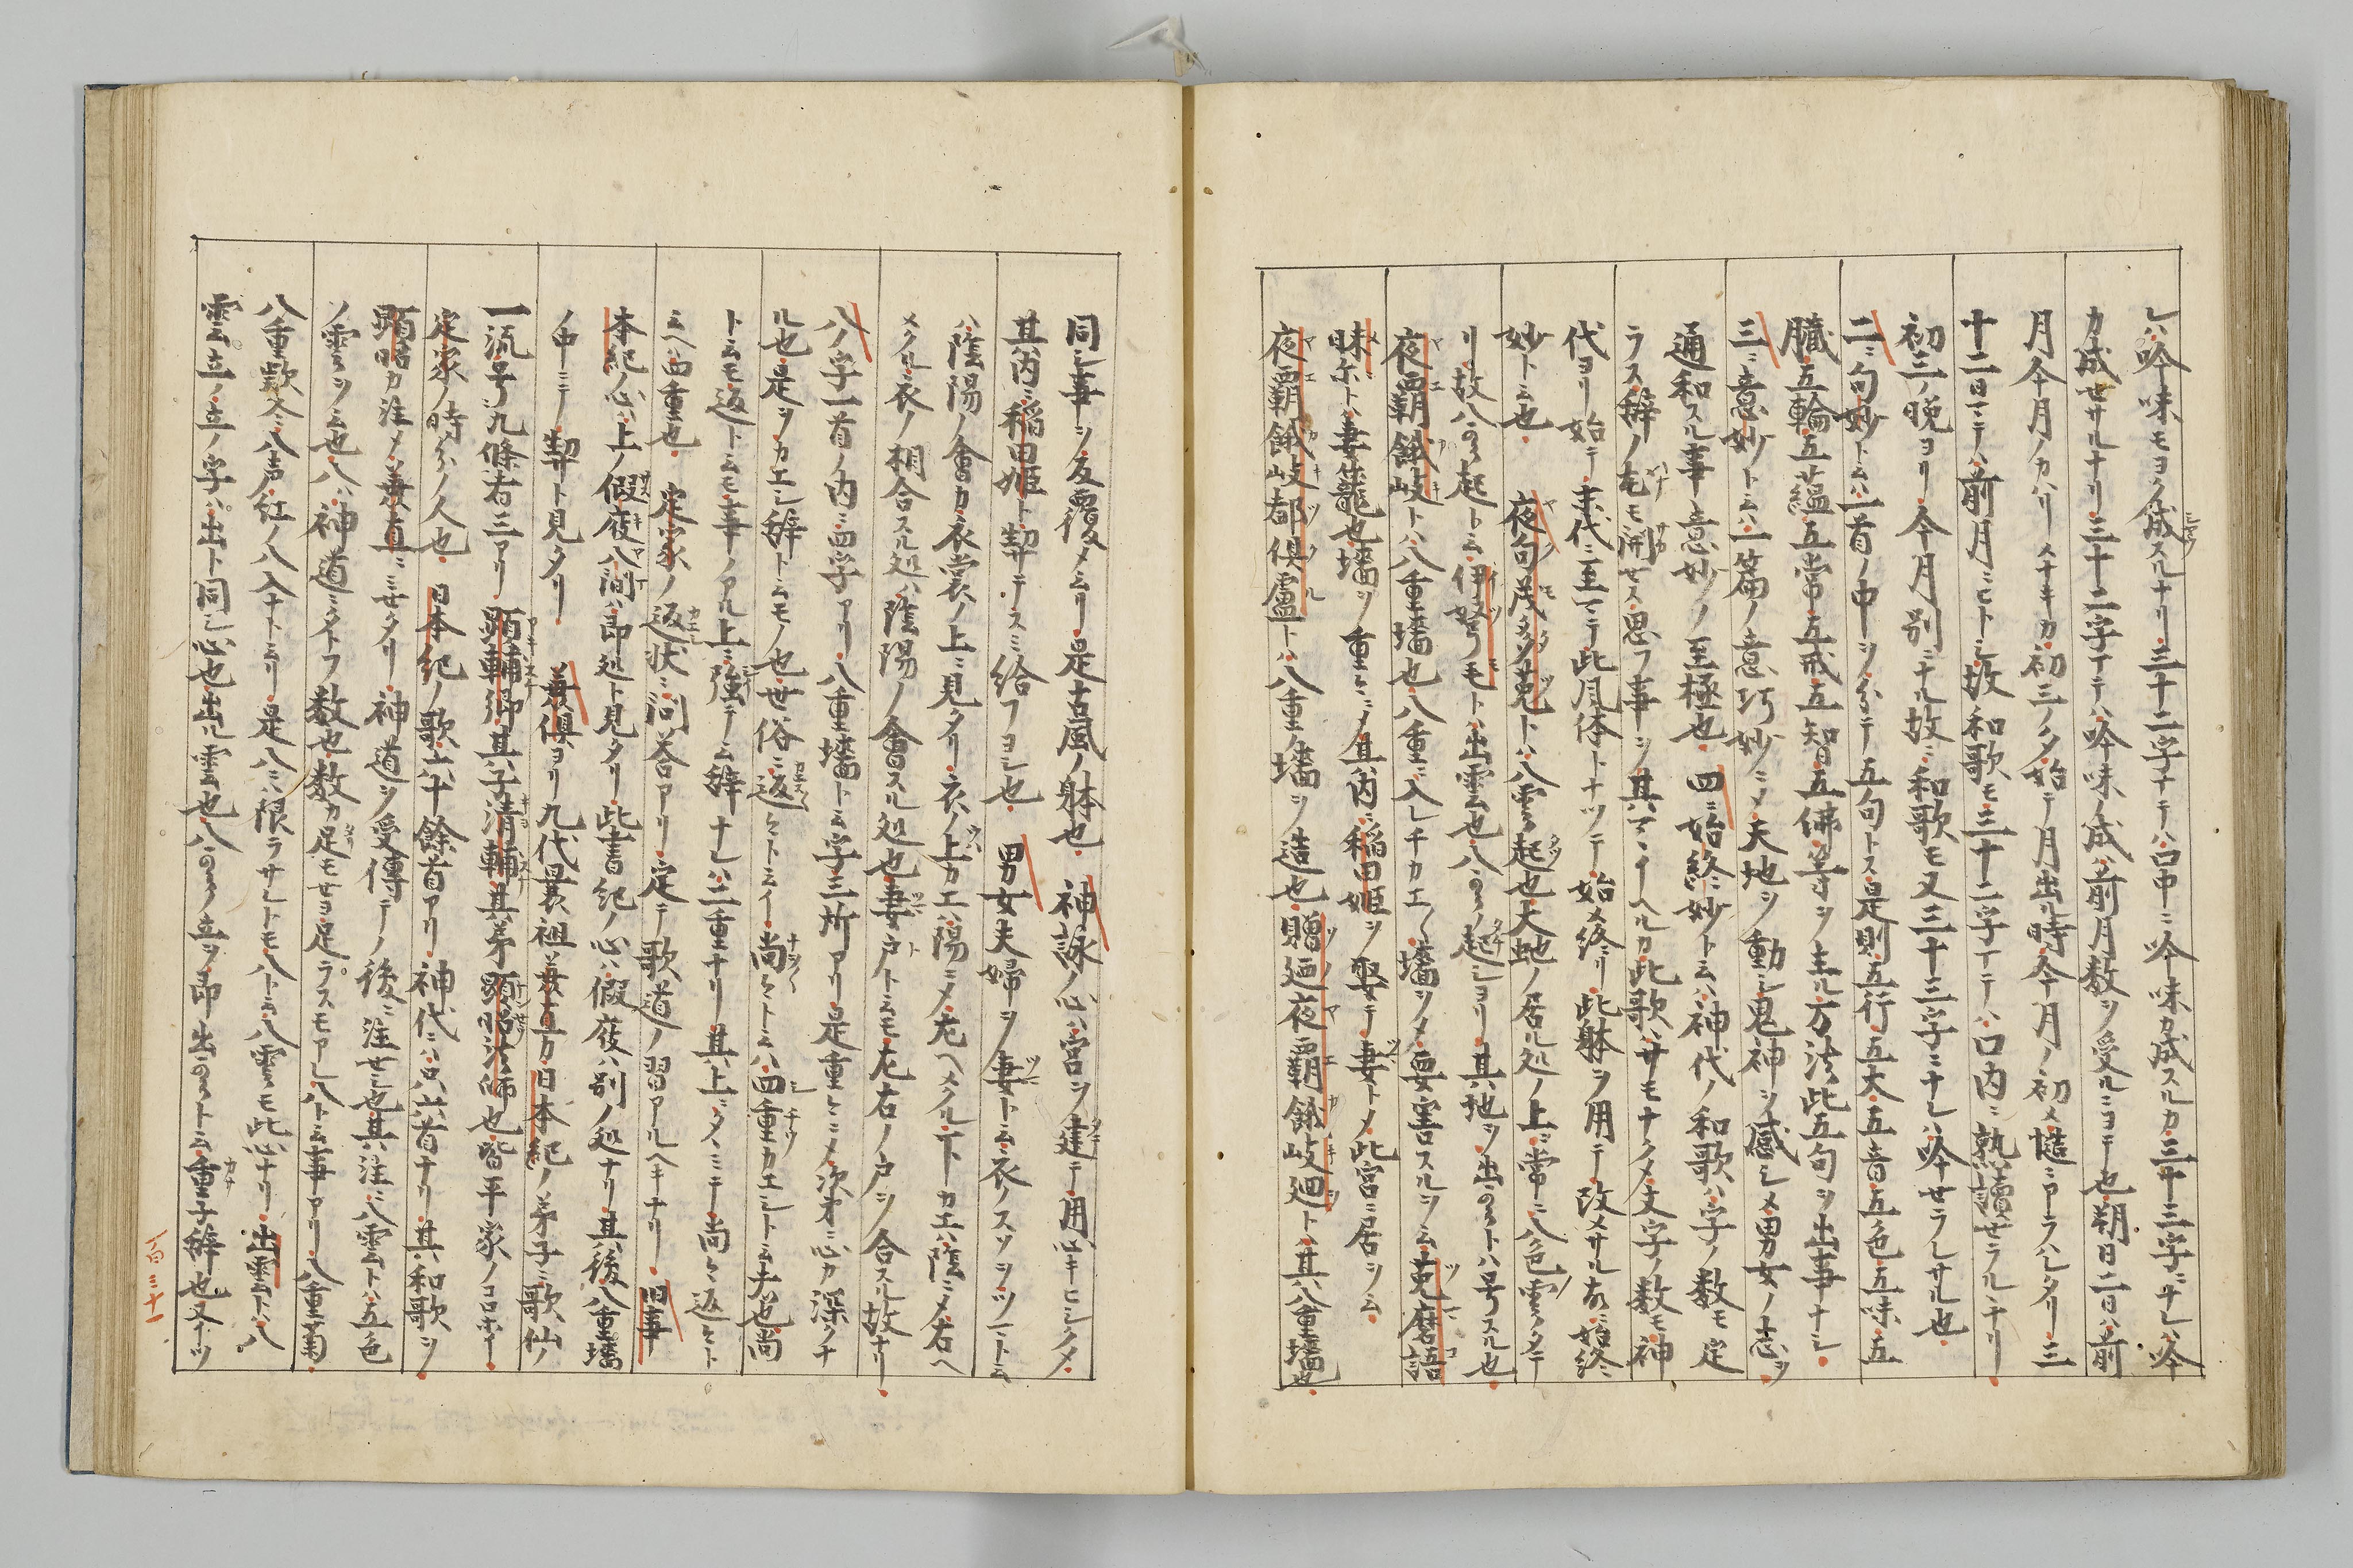 レハ吟味モヨク減スルナリ三十二字ナテハ口中ニ吟味カ減スルカ三十三字ナレハ吟
カ減セサルナリ三十二字テハ吟味ノ減ハ前月数ヲ受ルニヨテ也朔日二日ハ前
月今月ノカハリメナキカ初三ノ夕始テ月出ル時今月ノ初メ慥ニアラハレタリ三
十二日ニテハ前月ニヒトシ故和歌モ三十二字テハ口内ニ熟読セラルヽナリ
初三ノ晩ヨリ今月別ニナル故ニ和歌モ又三十三字ニナレハ吟セラレサル也
二ニ句妙トニハ一首ノ中ヲ分テ五句トス是則五行五大五音五色五味五
臓五輪五蘊五常五戒五智五佛等ヲ主ル方法此五句ヲ出事ナシ
三ニ意妙ト云ハ一篇ノ意巧妙ニメ天地ヲ動シ鬼神ヲ感セシメ男女ノ志ヲ
通和スル事意妙ノ至極也四ニ始終妙ト云ハ神代ノ和歌ハ字ノ数モ定
ラス辞ノ花モ開セス思フ事ヲ其マヽイヘルカ此歌ハサモナクメ文字ノ数モ神
代ヨリ始テ末代ニ至マテ此風体トナツテ始メ終リ此躰ヲ用テ改メサル故ニ始終
妙ト云也夜句茂多菟トハ八雲起也大虵ノ居ル処ノ上ニ常ニ八色ノ雲タテ
リ故八雲起ト云伊弩モトハ出雲也八雲ノ起シヨリ其地ヲ出雲トハ号スル也
夜覇餓岐トハ八重墻也八重ニ入レチカエ〱墻ヲメ要害スルヲ云菟磨語
昧尓トハ妻籠也墻ヲ重々ニメ其内ニ稲田姫ヲ娶テ妻トメ此宮ニ居ヲ云
夜覇餓岐都倶盧トハ八重ノ墻ヲ造也贈廼夜覇餓岐廼トハ其八重墻也
同シ事ヲ反覆メ云リ是古風ノ躰也神詠ノ心ハ宮ヲ建テ用心キヒシクメ
其内ニ稲田姫ト契テスミ給フヨシ也男女夫婦ヲ妻ト云衣ノスソヲツマト云
ハ陰陽ノ會カ衣裳ノ上ニ見タリ衣ノ上カエハ陽ニメ左ヘメクル下カエハ陰ニメ右ヘ
メクル衣ノ相合スル処ハ陰陽ノ會スル処也妻戸ト云モ左右ノ戸ヲ合スル故ナリ
八ノ字一首ノ内ニ四字アリ八重墻ト云字三所アリ是重々ニメ次才ニ心カ深クナ
ル也是ヲカエシ辞ト云モノ也世俗ニ返々ト云イ尚々ト云ハ四重カエシト云夫也尚
ト云モ返ト云モ事ノアル上ニ強テ云辞ナレハ二重ナリ其上ニタヽミテ尚々返々ト
云ヘハ四重也定家ノ返状ニ問答アリ定テ歌道ノ習アルヘキナリ旧事
本紀ノ心ハ上ノ假庪八間ハ即処ト見タリ此書紀ノ心ハ假庪ハ別ノ処ナリ其後八重墻
ノ中ニテ契ト見タリ兼倶ヨリ九代曩祖兼直方日本紀ノ弟子ニ歌仙ノ
一流号九條者三アリ顕輔卿其子清輔其弟顕昭法師也皆平家ノコロホイ
定家ノ時分ノ人也日本紀ノ歌六十餘首アリ神代ニハ只六首ナリ其和歌ヲ
顕昭カ注メ兼直ニ云セタリ神道ヲ受傳テノ後ニ注セシ也其注ニ八雲トハ五色
ノ雲ヲ云也八ハ神道ニタトフ数也数カ足モセヨ足ラスモアレ八ト云事アリ八重菊
八重歎冬ニ八声紅ノ八入ナト云リ是八ニ限ラサレトモ八ト云八雲モ此心ナリ出雲トハ八
雲立ノ立ノ字ハ出ト同シ心也出ル雲也八雲立ヲ即出雲ト云重子辞也又イツ
百四三十一